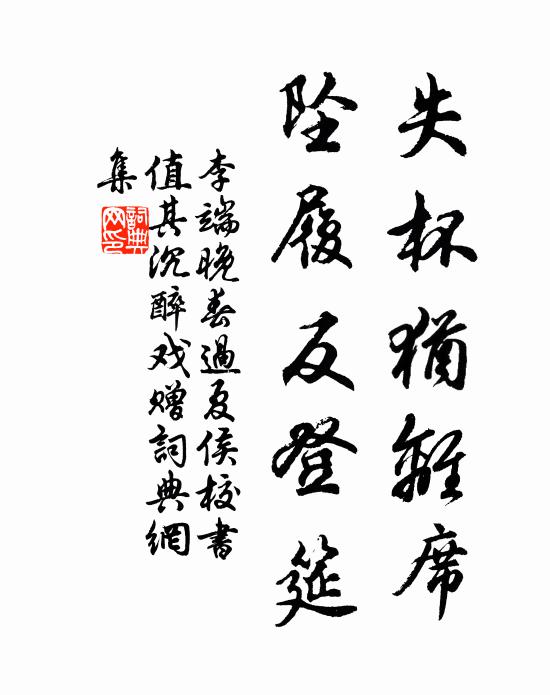 失杯猶離席
墜履反登筵
李端晚春過夏侯校書
值其沉醉戏贈詞典網
集
詞典网印